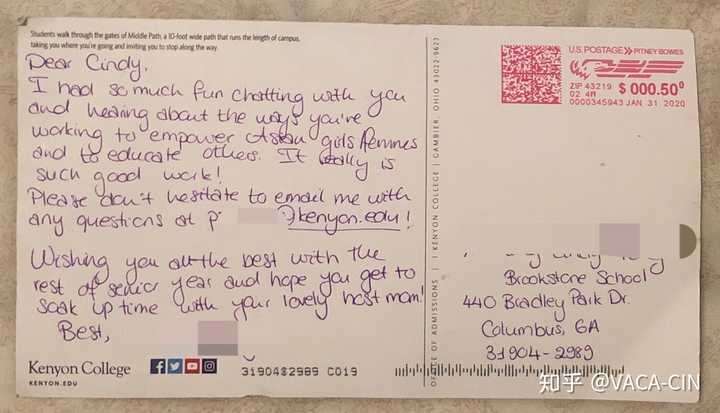 Students walk through the gates of Middle Path, a 10-foot wide path that runs the length of campus,
taking you where you're going and inviting you to stop along the way.
Dear Cindy,
I had so much fun chatting with you
and hearing about the ways you're
working to empower Asian girls femmes
and to educate others. It really is
such good work!
Please don't hesitate to email me with
any questions at p @kenyon.edu!
Wishing you all the best with the
rest of senior year and hope you get to
soak up time with your lovely host mom!
Best,
Kenyon College
KENYON.EDU
31904$2989 C019
OFFICE OF ADMISSIONS | KENYON COLLEGE | GAMBIER, OHIO 43022-9623
U.S. POSTAGE >> PITNEY BOWES
ZIP 43219 $ 000.50⁰
02 4M
0000345943 JAN 31 2020
Brookstone School
440 Bradley Park Dr.
Columbus, GA
31904-2989
知乎 @VACA-CIN